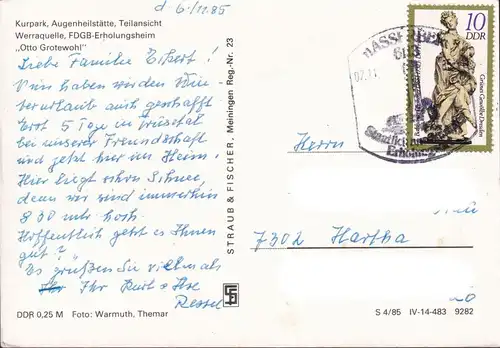 d. 6./11.85
Kurpark, Augenheilstätte, Teilansicht
Werraquelle, FDGB-Erholungsheim
„Otto Grotewohl"
Liebe Familie Eckert!
Uns haben wir den Win-
terurlaub auch geschafft
Erst 5 Tage in Trusetal
bei unserer Freundschaft
und jetzt hier im Heim!
Hier liegt schon Schnee,
denn wir sind immerhin
830 mtr hoch.
Hoffentlich geht es Ihnen
gut?
Es grüßen Sie vielmals
Ihr Kurt + Ilse
Ressel
DDR 0,25 M Foto: Warmuth, Themar
STRAUB & FISCHER, Meiningen Reg.-Nr. 23
MASSERBERG
6113
07.11.
Staatlicher
Erholungs
10
DDR
Grünes Gewölbe Dresden
Herrn
7302 Hartha
S 4/85 IV-14-483 9282